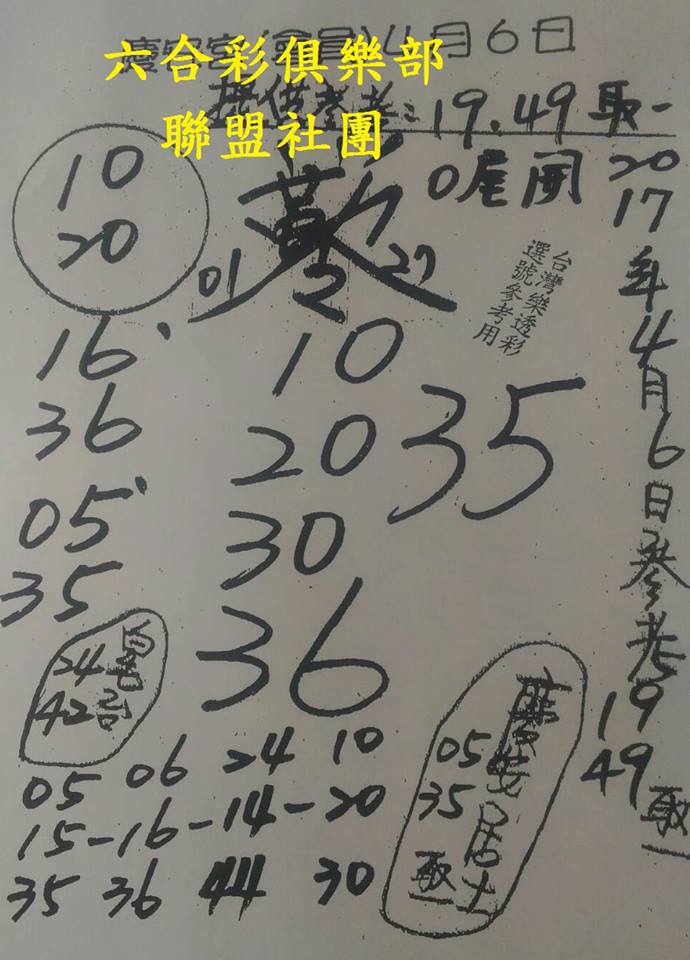 慶安宮(會員)4月6日
六合彩俱樂部
聯盟社團
提供參考:19.49取一
0尾開
10
20
01 27
台灣樂透彩
選號參考用
2017年4月6日參考
19
49
取一
16
36
05
35
10
20
30
36
35
24
42
05 06 24 10
15-16-14-20
35 36 44 30
慶安居士
05
35
取一